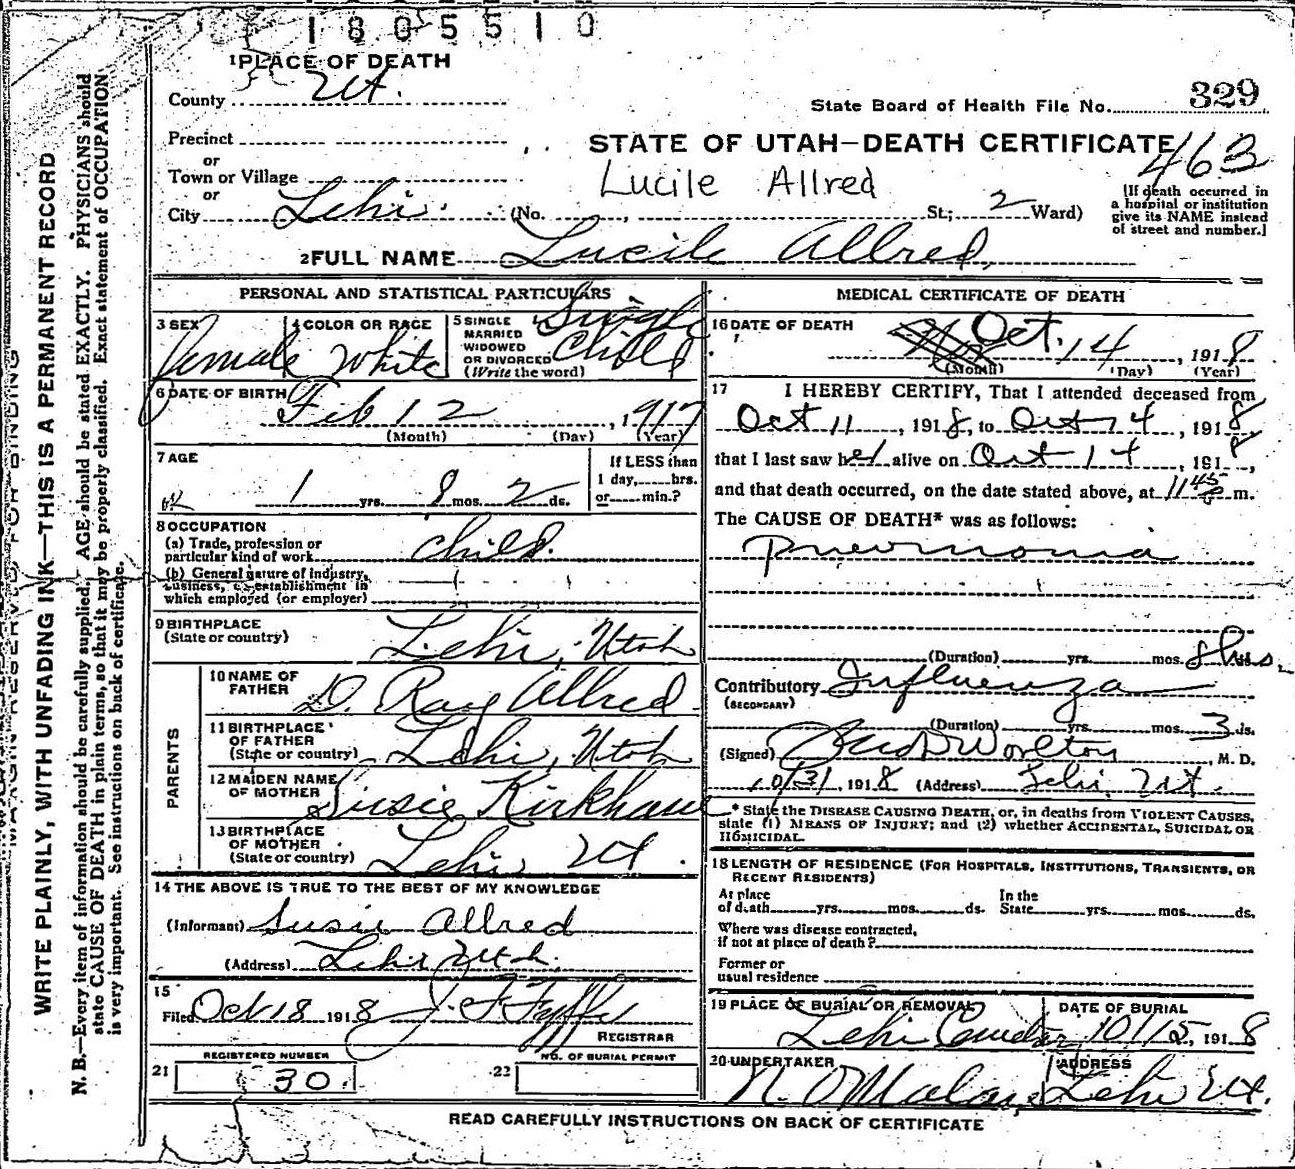 1805510
1 PLACE OF DEATH
County Ut.
State Board of Health File No. 329
Precinct
or
Town or Village
or
City Lehi. (No. , St; 2 Ward)
STATE OF UTAH—DEATH CERTIFICATE
463
Lucile Allred
[If death occurred in
a hospital or institution
give its NAME instead
of street and number.]
2 FULL NAME Lucile Allred.
PERSONAL AND STATISTICAL PARTICULARS
3 SEX female
4 COLOR OR RACE White
5 SINGLE
MARRIED
WIDOWED
OR DIVORCED
(Write the word)
Single
Child
6 DATE OF BIRTH
Feb 12, 1917
(Month) (Day) (Year)
7 AGE
1 yrs. 8 mos. 2 ds.
If LESS than
1 day, hrs.
or min.?
8 OCCUPATION
(a) Trade, profession or
particular kind of work child.
(b) General nature of industry,
business, or establishment in
which employed (or employer)
9 BIRTHPLACE
(State or country) Lehi, Utah
PARENTS
10 NAME OF
FATHER D. Ray Allred
11 BIRTHPLACE
OF FATHER
(State or country) Lehi, Utah
12 MAIDEN NAME
OF MOTHER Susie Kirkham
13 BIRTHPLACE
OF MOTHER
(State or country) Lehi Ut.
14 THE ABOVE IS TRUE TO THE BEST OF MY KNOWLEDGE
(Informant) Susie Allred
(Address) Lehi Utah.
15
Filed Oct 18 1918
REGISTRAR
REGISTERED NUMBER
21 30
NO. OF BURIAL PERMIT
22
MEDICAL CERTIFICATE OF DEATH
16 DATE OF DEATH
Oct. 14, 1918
(Month) (Day) (Year)
17 I HEREBY CERTIFY, That I attended deceased from
Oct 11, 1918, to Oct 14, 1918
that I last saw her alive on Oct 14, 1918,
and that death occurred, on the date stated above, at 11 45 m.
The CAUSE OF DEATH* was as follows:
Pneumonia
(Duration) yrs. mos. 8 hrs.
Contributory Influenza
(SECONDARY)
(Duration) yrs. mos. 3 ds.
(Signed) , M. D.
10/31, 1918 (Address) Lehi, Ut.
* State the DISEASE CAUSING DEATH, or, in deaths from VIOLENT CAUSES,
state (1) MEANS OF INJURY; and (2) whether ACCIDENTAL, SUICIDAL OR
HOMICIDAL.
18 LENGTH OF RESIDENCE (FOR HOSPITALS, INSTITUTIONS, TRANSIENTS, OR
RECENT RESIDENTS)
At place
of death yrs. mos. ds.
In the
State yrs. mos. ds.
Where was disease contracted,
if not at place of death?
Former or
usual residence
19 PLACE OF BURIAL OR REMOVAL
Lehi
DATE OF BURIAL
10/15, 1918
20 UNDERTAKER
ADDRESS
Lehi Ut.
READ CAREFULLY INSTRUCTIONS ON BACK OF CERTIFICATE
MARGIN RESERVED FOR BINDING
WRITE PLAINLY, WITH UNFADING INK—THIS IS A PERMANENT RECORD
N. B.—Every item of information should be carefully supplied. AGE should be stated EXACTLY. PHYSICIANS should
state CAUSE OF DEATH in plain terms, so that it may be properly classified. Exact statement of OCCUPATION
is very important. See instructions on back of certificate.